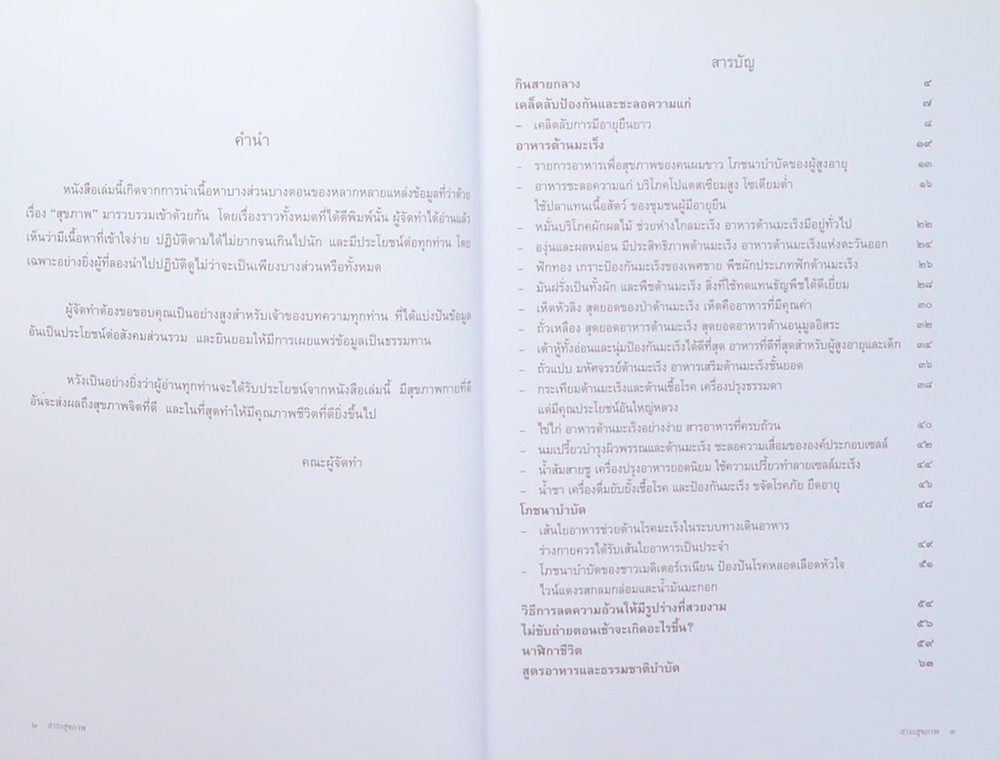 คำนำ
หนังสือเล่มนี้เกิดจากการนำเนื้อหาบางส่วนบางตอนของหลากหลายแหล่งข้อมูลที่ว่าด้วย
เรื่อง “สุขภาพ” มารวบรวมเข้าด้วยกัน โดยเรื่องราวทั้งหมดที่ได้ตีพิมพ์นั้น ผู้จัดทำได้อ่านแล้ว
เห็นว่ามีเนื้อหาที่เข้าใจง่าย ปฏิบัติตามได้ไม่ยากจนเกินไปนัก และมีประโยชน์ต่อทุกท่าน โดย
เฉพาะอย่างยิ่งผู้ที่ลองนำไปปฏิบัติดูไม่ว่าจะเป็นเพียงบางส่วนหรือทั้งหมด
ผู้จัดทำต้องขอขอบคุณเป็นอย่างสูงสำหรับเจ้าของบทความทุกท่าน ที่ได้แบ่งปันข้อมูล
อันเป็นประโยชน์ต่อสังคมส่วนรวม และยินยอมให้มีการเผยแพร่ข้อมูลเป็นธรรมทาน
หวังเป็นอย่างยิ่งว่าผู้อ่านทุกท่านจะได้รับประโยชน์จากหนังสือเล่มนี้ มีสุขภาพกายที่ดี
อันจะส่งผลถึงสุขภาพจิตที่ดี และในที่สุดทำให้มีคุณภาพชีวิตที่ดียิ่งขึ้นไป
คณะผู้จัดทำ
๒ สาระสุขภาพ
สารบัญ
กินสายกลาง ๔
เคล็ดลับป้องกันและชะลอความแก่ ๗
- เคล็ดลับการมีอายุยืนยาว ๘
อาหารต้านมะเร็ง ๑๙
- รายการอาหารเพื่อสุขภาพของคนผมขาว โภชนาบำบัดของผู้สูงอายุ ๑๓
- อาหารชะลอความแก่ บริโภคโปแตสเซียมสูง โซเดียมต่ำ ๑๖
ใช้ปลาแทนเนื้อสัตว์ ของชุมชนผู้มีอายุยืน
- หมั่นบริโภคผักผลไม้ ช่วยห่างไกลมะเร็ง อาหารต้านมะเร็งมีอยู่ทั่วไป ๒๒
- องุ่นและผลหม่อน มีประสิทธิภาพต้านมะเร็ง อาหารต้านมะเร็งแห่งตะวันออก ๒๔
- ฟักทอง เกราะป้องกันมะเร็งของเพศชาย พืชผักประเภทฟักต้านมะเร็ง ๒๖
- มันฝรั่งเป็นทั้งผัก และพืชต้านมะเร็ง สิ่งที่ใช้ทดแทนธัญพืชได้ดีเยี่ยม ๒๘
- เห็ดหัวลิง สุดยอดของป่าต้านมะเร็ง เห็ดคืออาหารที่มีคุณค่า ๓๐
- ถั่วเหลือง สุดยอดอาหารต้านมะเร็ง สุดยอดอาหารต้านอนุมูลอิสระ ๓๒
- เต้าหู้ทั้งอ่อนและนุ่มป้องกันมะเร็งได้ดีที่สุด อาหารที่ดีที่สุดสำหรับผู้สูงอายุและเด็ก ๓๔
- ถั่วแปบ มหัศจรรย์ต้านมะเร็ง อาหารเสริมต้านมะเร็งชั้นยอด ๓๖
- กระเทียมต้านมะเร็งและต้านเชื้อโรค เครื่องปรุงธรรมดา ๓๘
แต่มีคุณประโยชน์อันใหญ่หลวง
- ไข่ไก่ อาหารต้านมะเร็งอย่างง่าย สารอาหารที่ครบถ้วน ๔๐
- นมเปรี้ยวบำรุงผิวพรรณและต้านมะเร็ง ชะลอความเสื่อมขององค์ประกอบเซลล์ ๔๒
- น้ำส้มสายชู เครื่องปรุงอาหารยอดนิยม ใช้ความเปรี้ยวทำลายเซลล์มะเร็ง ๔๔
- น้ำชา เครื่องดื่มยับยั้งเชื้อโรค และป้องกันมะเร็ง ขจัดโรคภัย ยืดอายุ ๔๖
โภชนาบำบัด ๔๘
- เส้นใยอาหารช่วยต้านโรคมะเร็งในระบบทางเดินอาหาร
ร่างกายควรได้รับเส้นใยอาหารเป็นประจำ ๔๙
- โภชนาบำบัดของชาวเมดิเตอร์เรเนียน ป้องปันโรคหลอดเลือดหัวใจ ๕๑
ไวน์แดงรสกลมกล่อมและน้ำมันมะกอก
วิธีการลดความอ้วนให้มีรูปร่างที่สวยงาม ๕๔
ไม่ขับถ่ายตอนเช้าจะเกิดอะไรขึ้น? ๕๖
นาฬิกาชีวิต ๕๙
สูตรอาหารและธรรมชาติบำบัด ๖๓
สาระสุขภาพ ๓